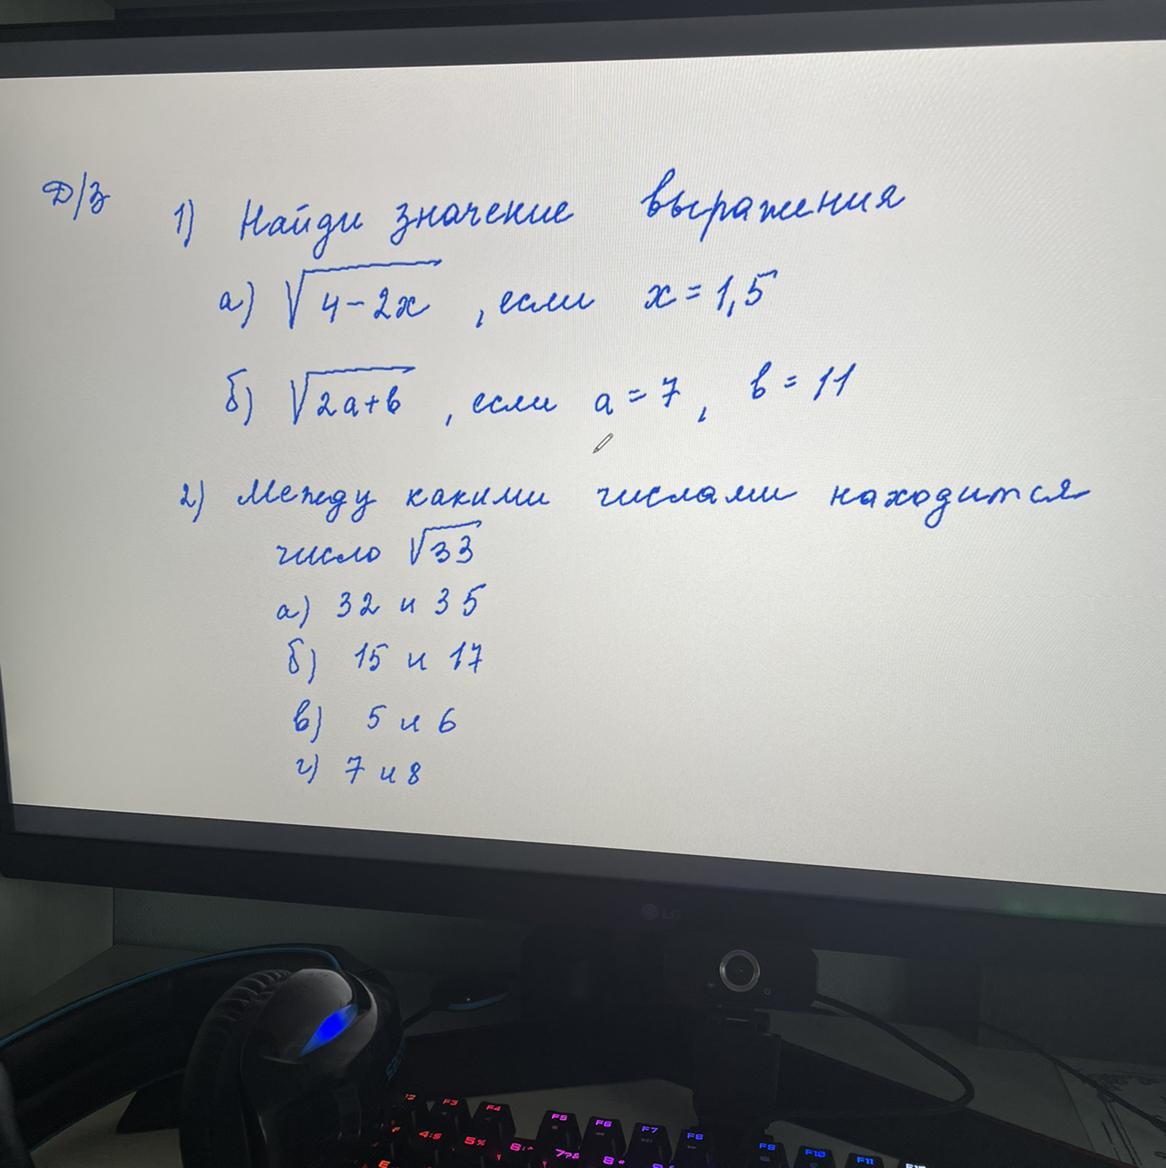 Д/з
1) Найди значение выражения
а) √4-2x , если x = 1,5
б) √2a+b , если a = 7, b = 11
2) Между какими числами находится
число √33
а) 32 и 35
б) 15 и 17
в) 5 и 6
г) 7 и 8
LG
F3 F4 F5 F6 F7 F8 F9 F10 F11